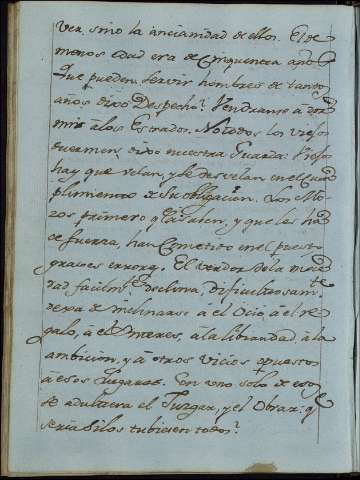 ver, sino la ancianidad de ellos. El de
menos edad era de Cinquenta años.
Que pueden servir hombres de tantos
años dixo Despecho? Vendranse à dor
mir à los Estrados. No todos los viejos
duermen, dixo nuestra Guarda: Viejos
hay que velan, y se desvelan en el Cum
plimiento de Su obligacion. Los Mo
zos primero q̃ la saven, y que les ha
ce fuerza, han Cometido en el puesto
graves errores. El verdor de la mos
dad facilmte. declina, dificultosamte.
dexa de inclinarse a el Ocio, à el re
galo, à el interes, à la libiandad, à la
ambicion, y à otros vicios opuestos
à esos Lugares. Con uno solo de esos
se adultera el Juzgar, y el Obrar: q̃
seria si los tubiesen todos?